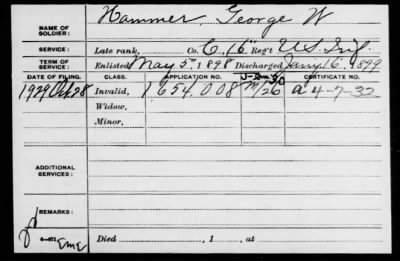 NAME OF SOLDIER: Hammer, George W
SERVICE: Late rank, Co. C, 16 Reg't U.S. Inf.
TERM OF SERVICE: Enlisted May 5, 1898 Discharged Jany. 16, 1899
DATE OF FILING. CLASS. APPLICATION NO. CERTIFICATE NO.
1929 Oct 28 Invalid, 1654.008 M/26 a 4-7-32
Widow,
Minor,
ADDITIONAL SERVICES:
REMARKS:
EME
Died , 1 , at